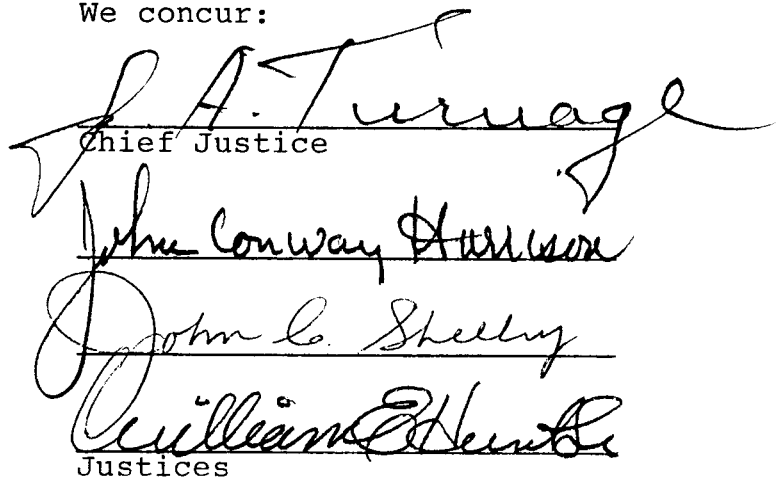 We concur:
J. A. Turnage
Chief Justice
John Conway Harrison
John C. Sheehy
William E. Hunt Sr.
Justices